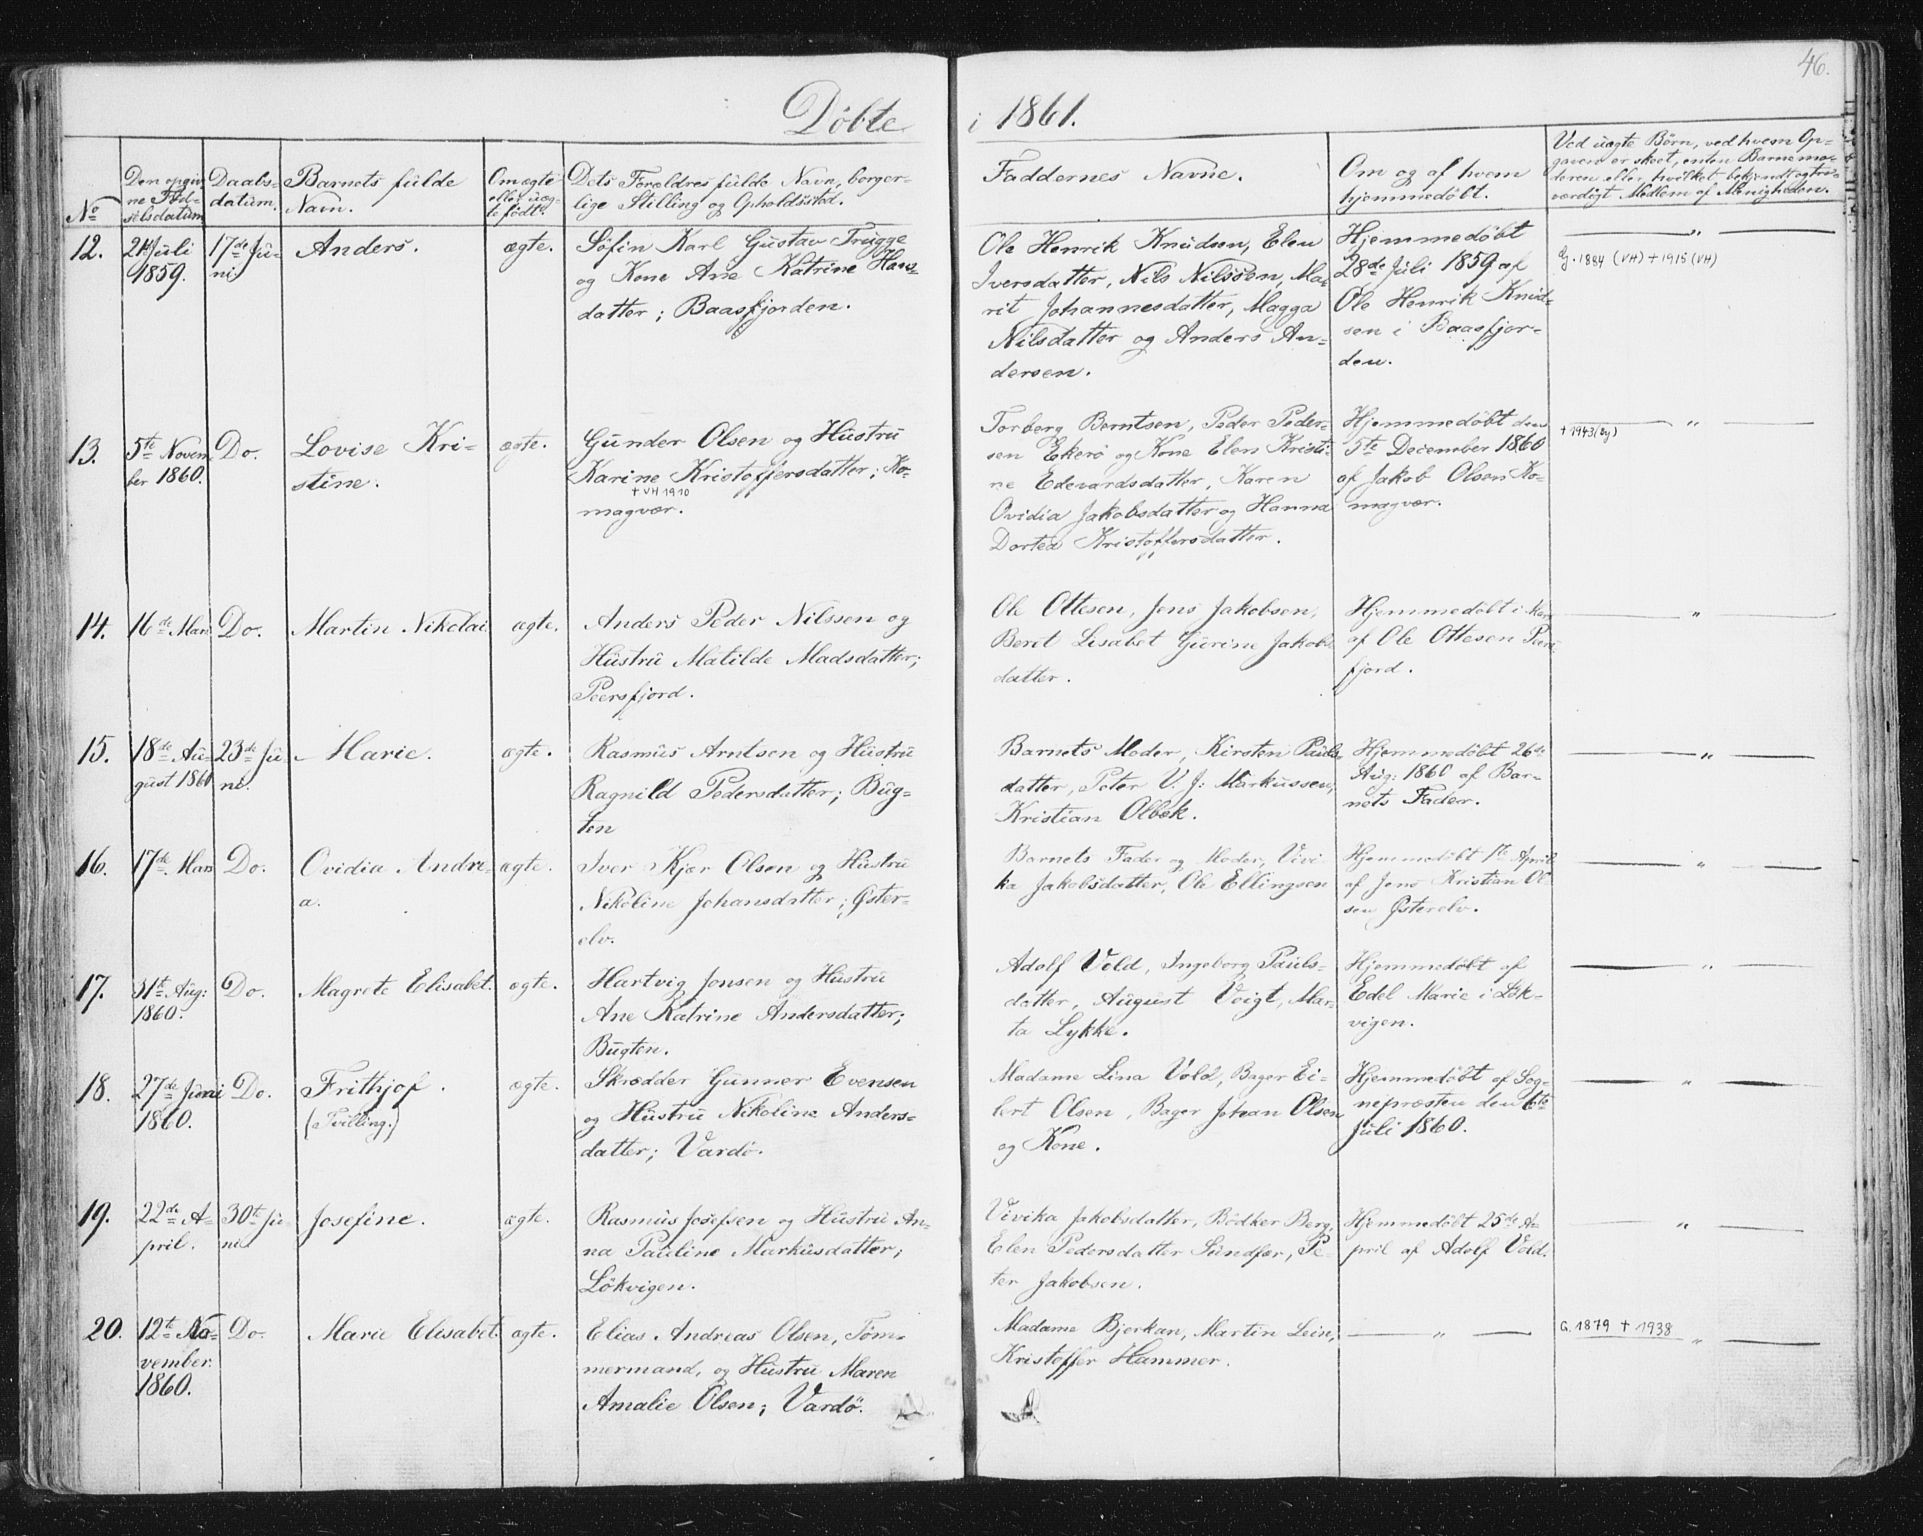 46.
Döbte i 1861.
No
Den opgiv
ne Föd-
selsdatum
Daabs-
datum.
Barnets fulde
Navn.
Om ægte
eller uæg-
te födt.
Dets Foreldres fulde Navn, borger-
lige Stilling og Opholdssted.
Faddernes Navne.
Om og af hvem
hjemmedöbt.
Ved uægte Börn, ved hvem Op-
gaven er skeet, enten Barnemo-
deren eller hvilket bekjendt og tro-
værdigt Medlem af Menigheden.
12.
Juli
1859.
17de Ju-
ni
Anders.
ægte.
Söfin Karl Gustav Trygge
og Kone Ane Katrine Hans-
datter; Baasfjorden.
Ole Henrik Knudsen, Elen
Iversdatter, Nils Nilssen, Ma-
rit Johannesdatter, Magga
Nilsdatter og Anders An-
dersen.
Hjemmedöbt
28de Juli 1859 af
Ole Henrik Knud-
sen i Baasfjor-
den.
"
g. 1884 (VH) + 1915 (VH)
13.
5te Novem
ber 1860.
Do.
Lovise Kri-
stine.
ægte.
Gunder Olsen og Hustru
Karine Kristoffersdatter; Ko-
+ VH 1910
magvær.
Torberg Berntsen, Peder Peder-
sen Ekerö og Kone Elen Kristi-
ne Edevardsdatter, Karen
Ovidia Jakobsdatter og Hanna
Dortea Kristoffersdatter.
Hjemmedöbt den
5te December 1860
af Jakob Olsen Ko-
magvær.
"
+ 1943 (By)
14.
16de Mars
Do.
Martin Nikolai
ægte.
Anders Peder Nilssen og
Hustru Matilde Madsdatter;
Peersfjord.
Ole Ottesen, Jens Jakobsen,
Beret Lisabet Gurine Jakobs
datter.
Hjemmedöbt i Mars
af Ole Ottesen Peers
fjord.
"
15.
18de Au-
gust 1860
23de Ju-
ni.
Marie.
ægte.
Rasmus Arntsen og Hustru
Ragnild Pedersdatter; Bug-
ten
Barnets Moder, Kirsten Pauls-
datter, Peter V. J: Markussen,
Kristian Olbek.
Hjemmedöbt 26de
Aug: 1860 af Bar-
nets Fader.
"
16.
17de Mars
Do.
Ovidia Andre-
a.
ægte.
Iver Kjær Olsen og Hustru
Nikoline Johansdatter; Öster-
elv.
Barnets Fader og Moder, Vivi-
ka Jakobsdatter, Ole Ellingsen
Hjemmedöbt 1te April
af Jens Kristian Ol
sen Österelv.
"
17.
31te Aug:
1860.
Do.
Magrete Elisabet.
ægte.
Hartvig Jonsen og Hustru
Ane Katrine Andersdatter;
Bugten.
Adolf Vold, Ingeborg Pauls-
datter, August Voigt, Mar-
ta Lykke.
Hjemmedöbt af
Edel Marie i Lök-
vigen.
"
18.
27de Juni
1860.
Do.
Frithjof.
(Tvilling.)
ægte.
Skrædder Gunner Evensen
og Hustru Nikoline Anders-
datter; Vardö.
Madame Lina Vold, Bager Ei-
lert Olsen, Bager Johan Olsen
og Kone.
Hjemmedöbt af Sog-
nepræsten den 6te
Juli 1860.
"
19.
22de A-
pril.
30te Ju-
ni
Josefine.
ægte.
Rasmus Josefsen og Hustru An-
na Pauline Markusdatter;
Lökvigen.
Vivika Jakobsdatter, Bödker Berg,
Elen Pedersdatter Sundfær, Pe-
ter Jakobsen.
Hjemmedöbt 25de A-
pril af Adolf Vold.
"
20.
12te No-
vember.
1860.
Do.
Marie Elisabet.
ægte.
Elias Andreas Olsen, Töm-
mermand, og Hustru Maren
Amalie Olsen; Vardö.
Madame Bjerkan, Martin Lein,
Kristoffer Hammer.
"
G. 1879 + 1938
"